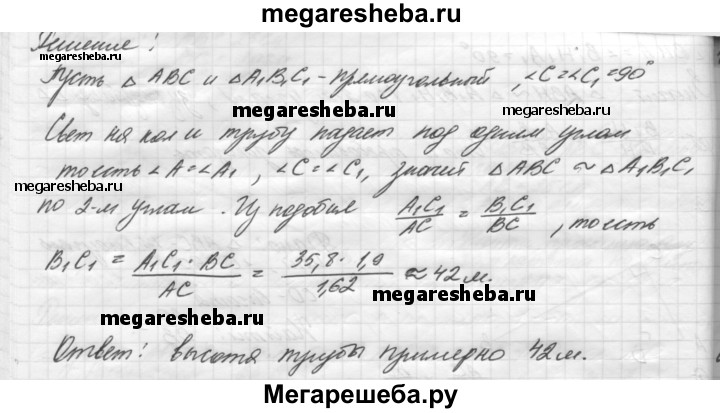 megaresheba.ru
Решение!
megaresheba.ru
Пусть △ ABC и △ A₁B₁C₁ - прямоугольный, ∠C=∠C₁=90°
megaresheba.ru megaresheba.ru
Свет на кол и трубу падает под одним углом
тоесть ∠A=∠A₁, ∠C=∠C₁, значит △ ABC ≈ △ A₁B₁C₁
megaresheba.ru
по 2-м углам. Из подобия A₁C₁/AC = B₁C₁/BC, тоесть
megaresheba.ru
B₁C₁ = A₁C₁ · BC/AC = 35,8 · 1,9/1,62 ≈ 42 м.
megaresheba.ru
megaresheba.ru
Ответ! высота трубы примерно 42 м.
megaresheba.ru
Мегарешеба.ру